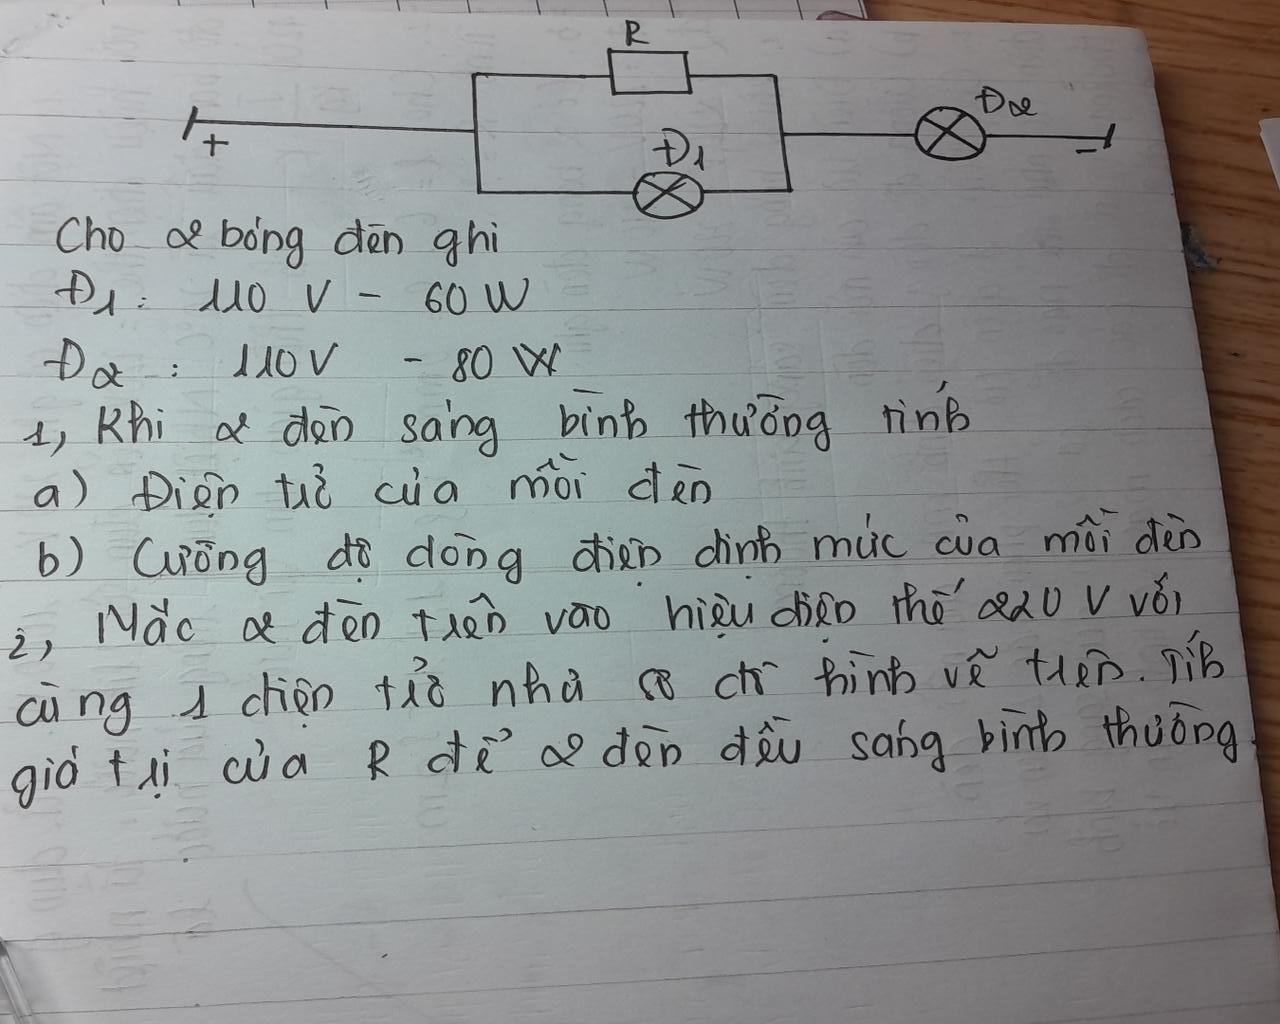 R
Đ2
+
Đ1
-
Cho 2 bóng đèn ghi
Đ1: 110 V - 60 W
Đ2 : 110V - 80 W
1, Khi 2 đèn sáng bình thường tính
a) Điện trở của mỗi đèn
b) Cường độ dòng điện định mức của mỗi đèn
2, Mắc 2 đèn trên vào hiệu điện thế 220 V với
cùng 1 điện trở như sơ đồ hình vẽ trên. Tính
giá trị của R để 2 đèn đều sáng bình thường.